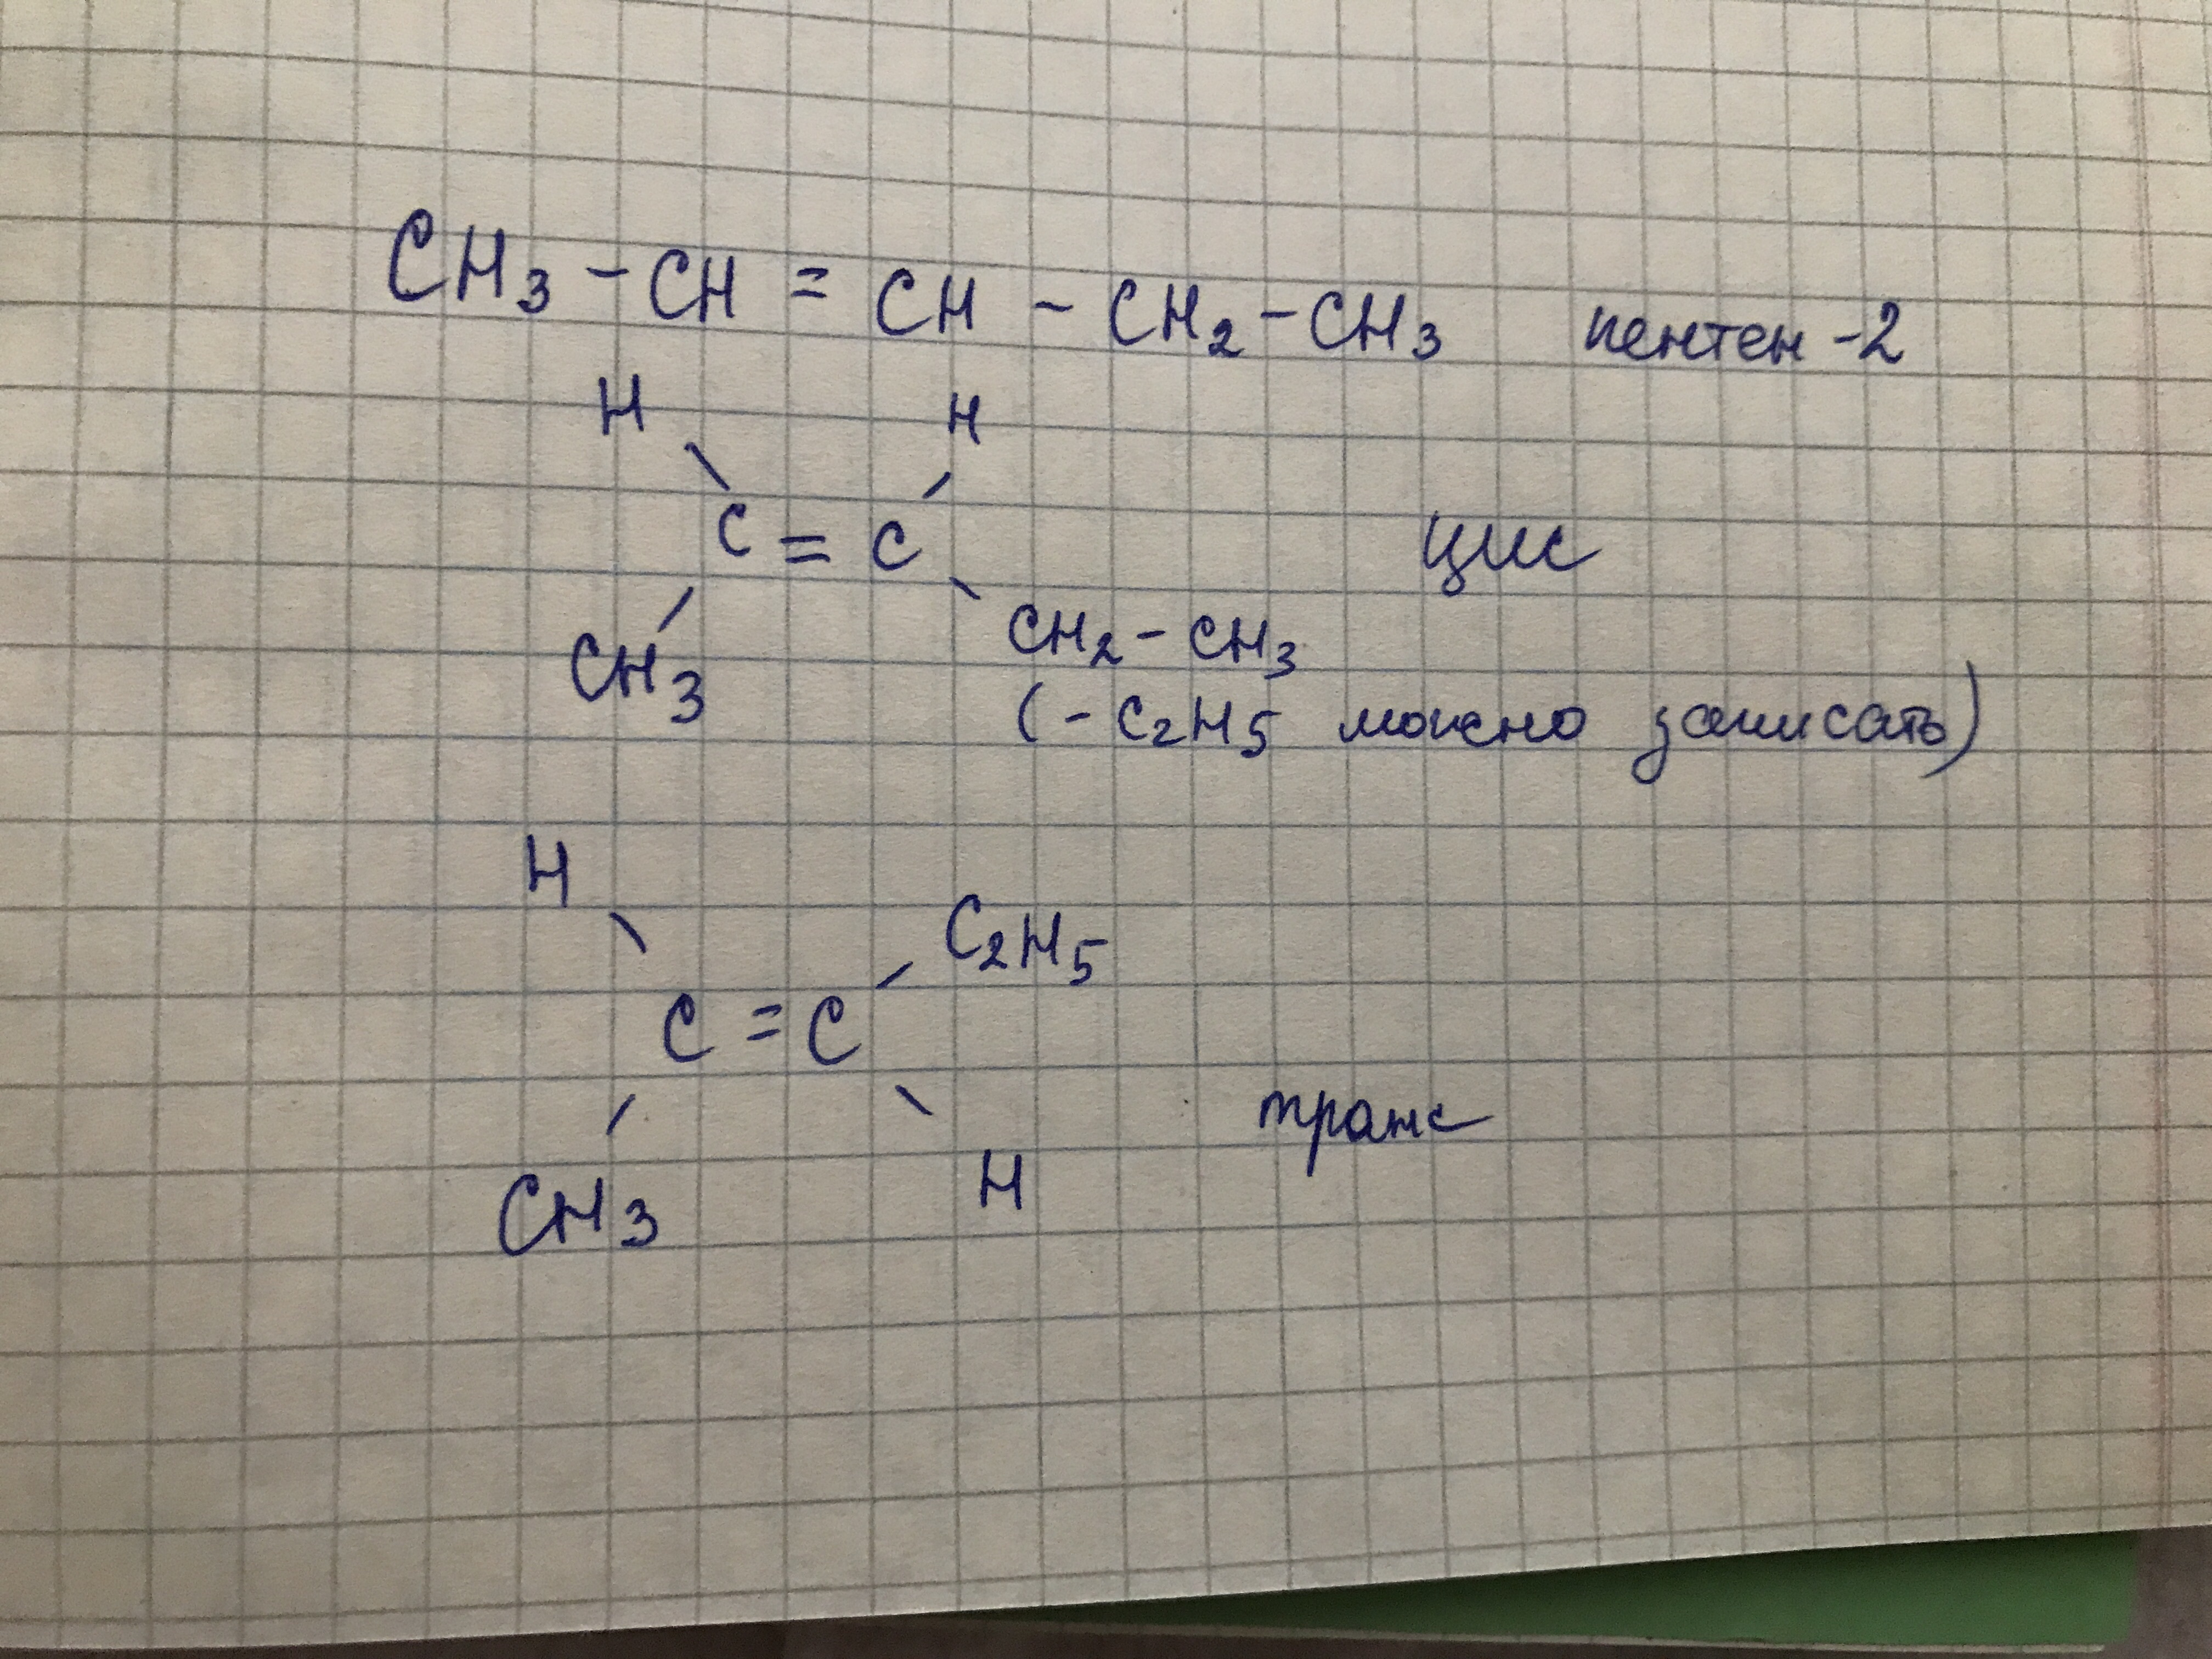 CH3 - CH = CH - CH2 - CH3 пентен-2
H H
C = C цис
CH3 CH2 - CH3
(-C2H5 можно записать)
H C2H5
C = C
транс
CH3 H